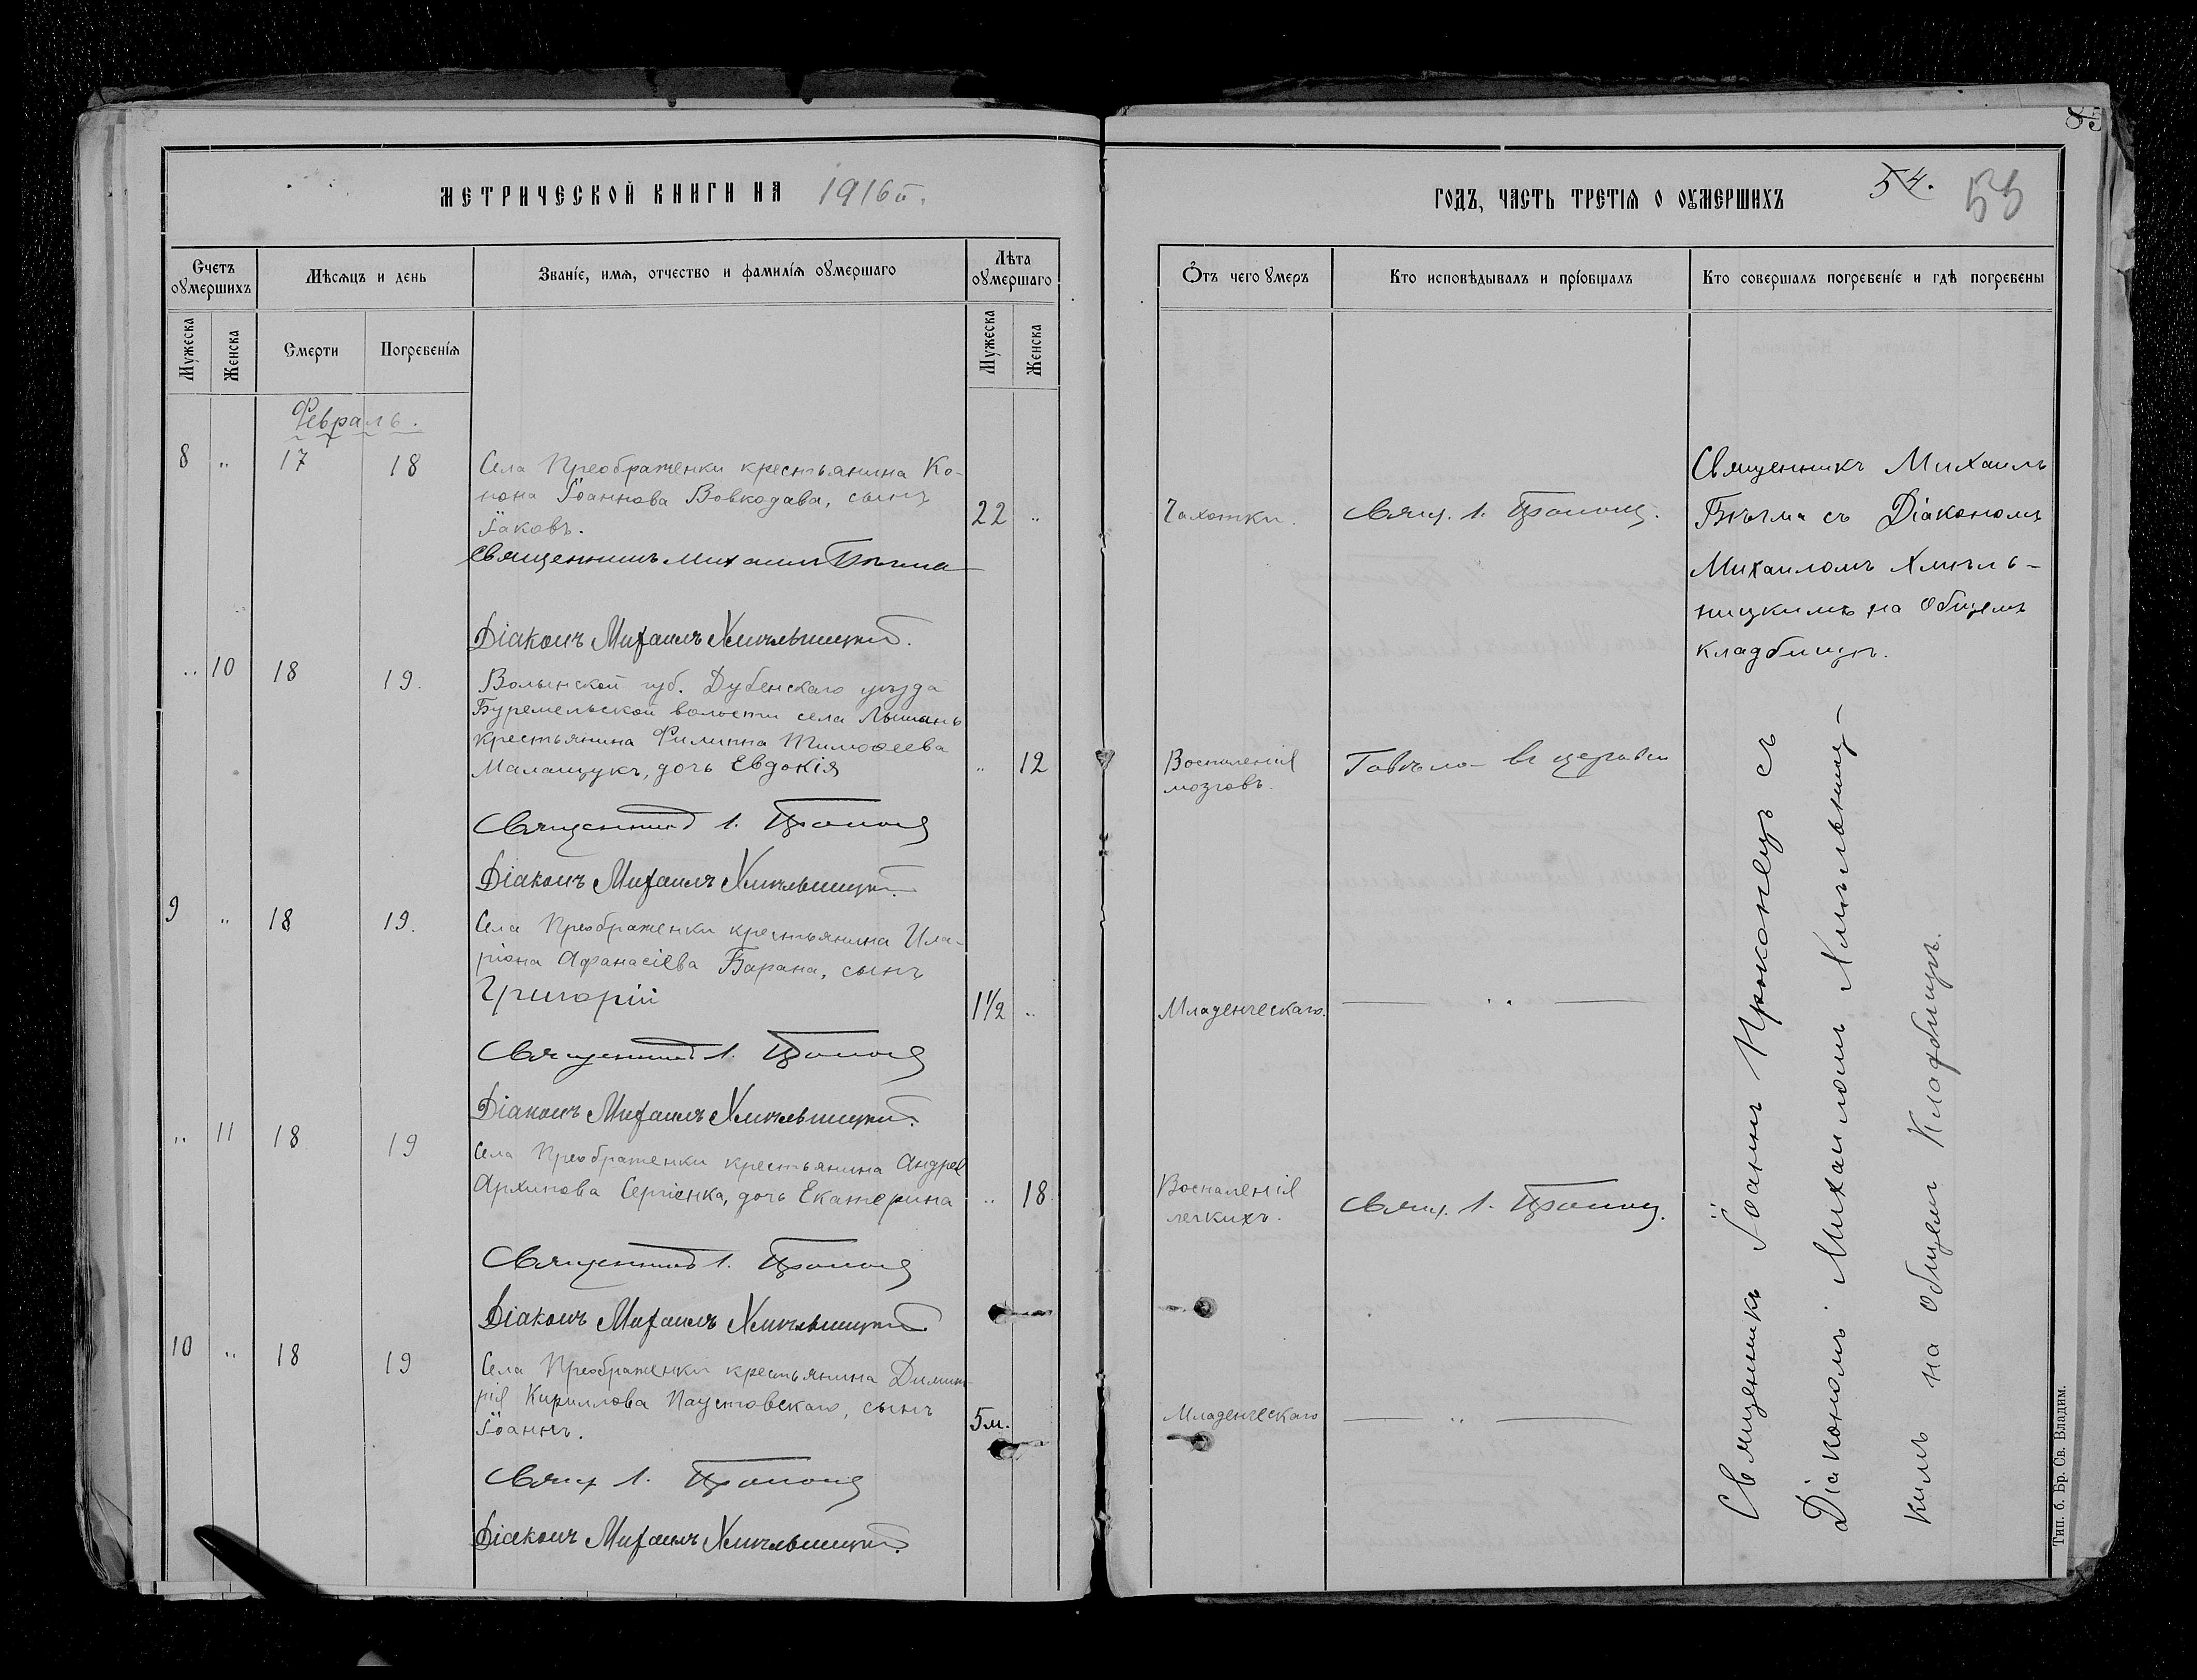 МЕТРИЧЕСКОЙ КНИГИ НА 1916й.
Счетъ оумершихъ
Мѣсяцъ и день
Званіе, имя, отчество и фамилія оумершаго
Лѣта оумершаго
Мужеска
Женска
Смерти
Погребенія
Мужеска
Женска
Февраль.
8 " 17 18
Села Преображенки крестьянина Ко-
нона Іоаннова Вовкодава, сынъ
Іаковъ.
22 "
Священникъ Михаилъ Бѣгма
Діаконъ Михаилъ Хмѣльницкій.
" 10 18 19.
Волынской губ. Дубенскаго уѣзда
Бурeмельской волости села Лышань
крестьянина Филиппа Тимоѳеева
Малащукъ, дочь Евдокія
" 12
Священникъ І.
Діаконъ Михаилъ Хмѣльницкій.
9 " 18 19.
Села Преображенки крестьянина Ила-
ріона Афанасіева Барана, сынъ
Григорій
1½ "
Священникъ І.
Діаконъ Михаилъ Хмѣльницкій.
" 11 18 19
Села Преображенки крестьянина Андрея
Архипова Сергіенка, дочь Екатерина
" 18
Священникъ І.
Діаконъ Михаилъ Хмѣльницкій
10 " 18 19
Села Преображенки крестьянина Димит
рія Кириллова Паустовскаго, сынъ
Іоаннъ.
5 м.
Свящ І.
Діаконъ Михаилъ Хмѣльницкій.
85
ГОДЪ, ЧАСТЬ ТРЕТІЯ О ОУМЕРШИХЪ
54.
55
Ѿтъ чего умеръ
Кто исповѣдывалъ и пріобщалъ
Кто совершалъ погребеніе и гдѣ погребены
Чахотки.
Свящ. І.
Священникъ Михаилъ
Бѣгма съ Діакономъ
Михаиломъ Хмѣль-
ницкимъ на общемъ
кладбищѣ.
Воспаленія
мозговъ.
Говѣла въ церкви
Младенческаго.
— " —
Воспаленія
легкихъ.
Свящ. І.
Младенческаго
— " —
Священникъ Іоаннъ Прокопецъ съ
Діакономъ Михаиломъ Хмѣльниц-
кимъ на общемъ Кладбищѣ.
Тип. б. Бр. Св. Владим.